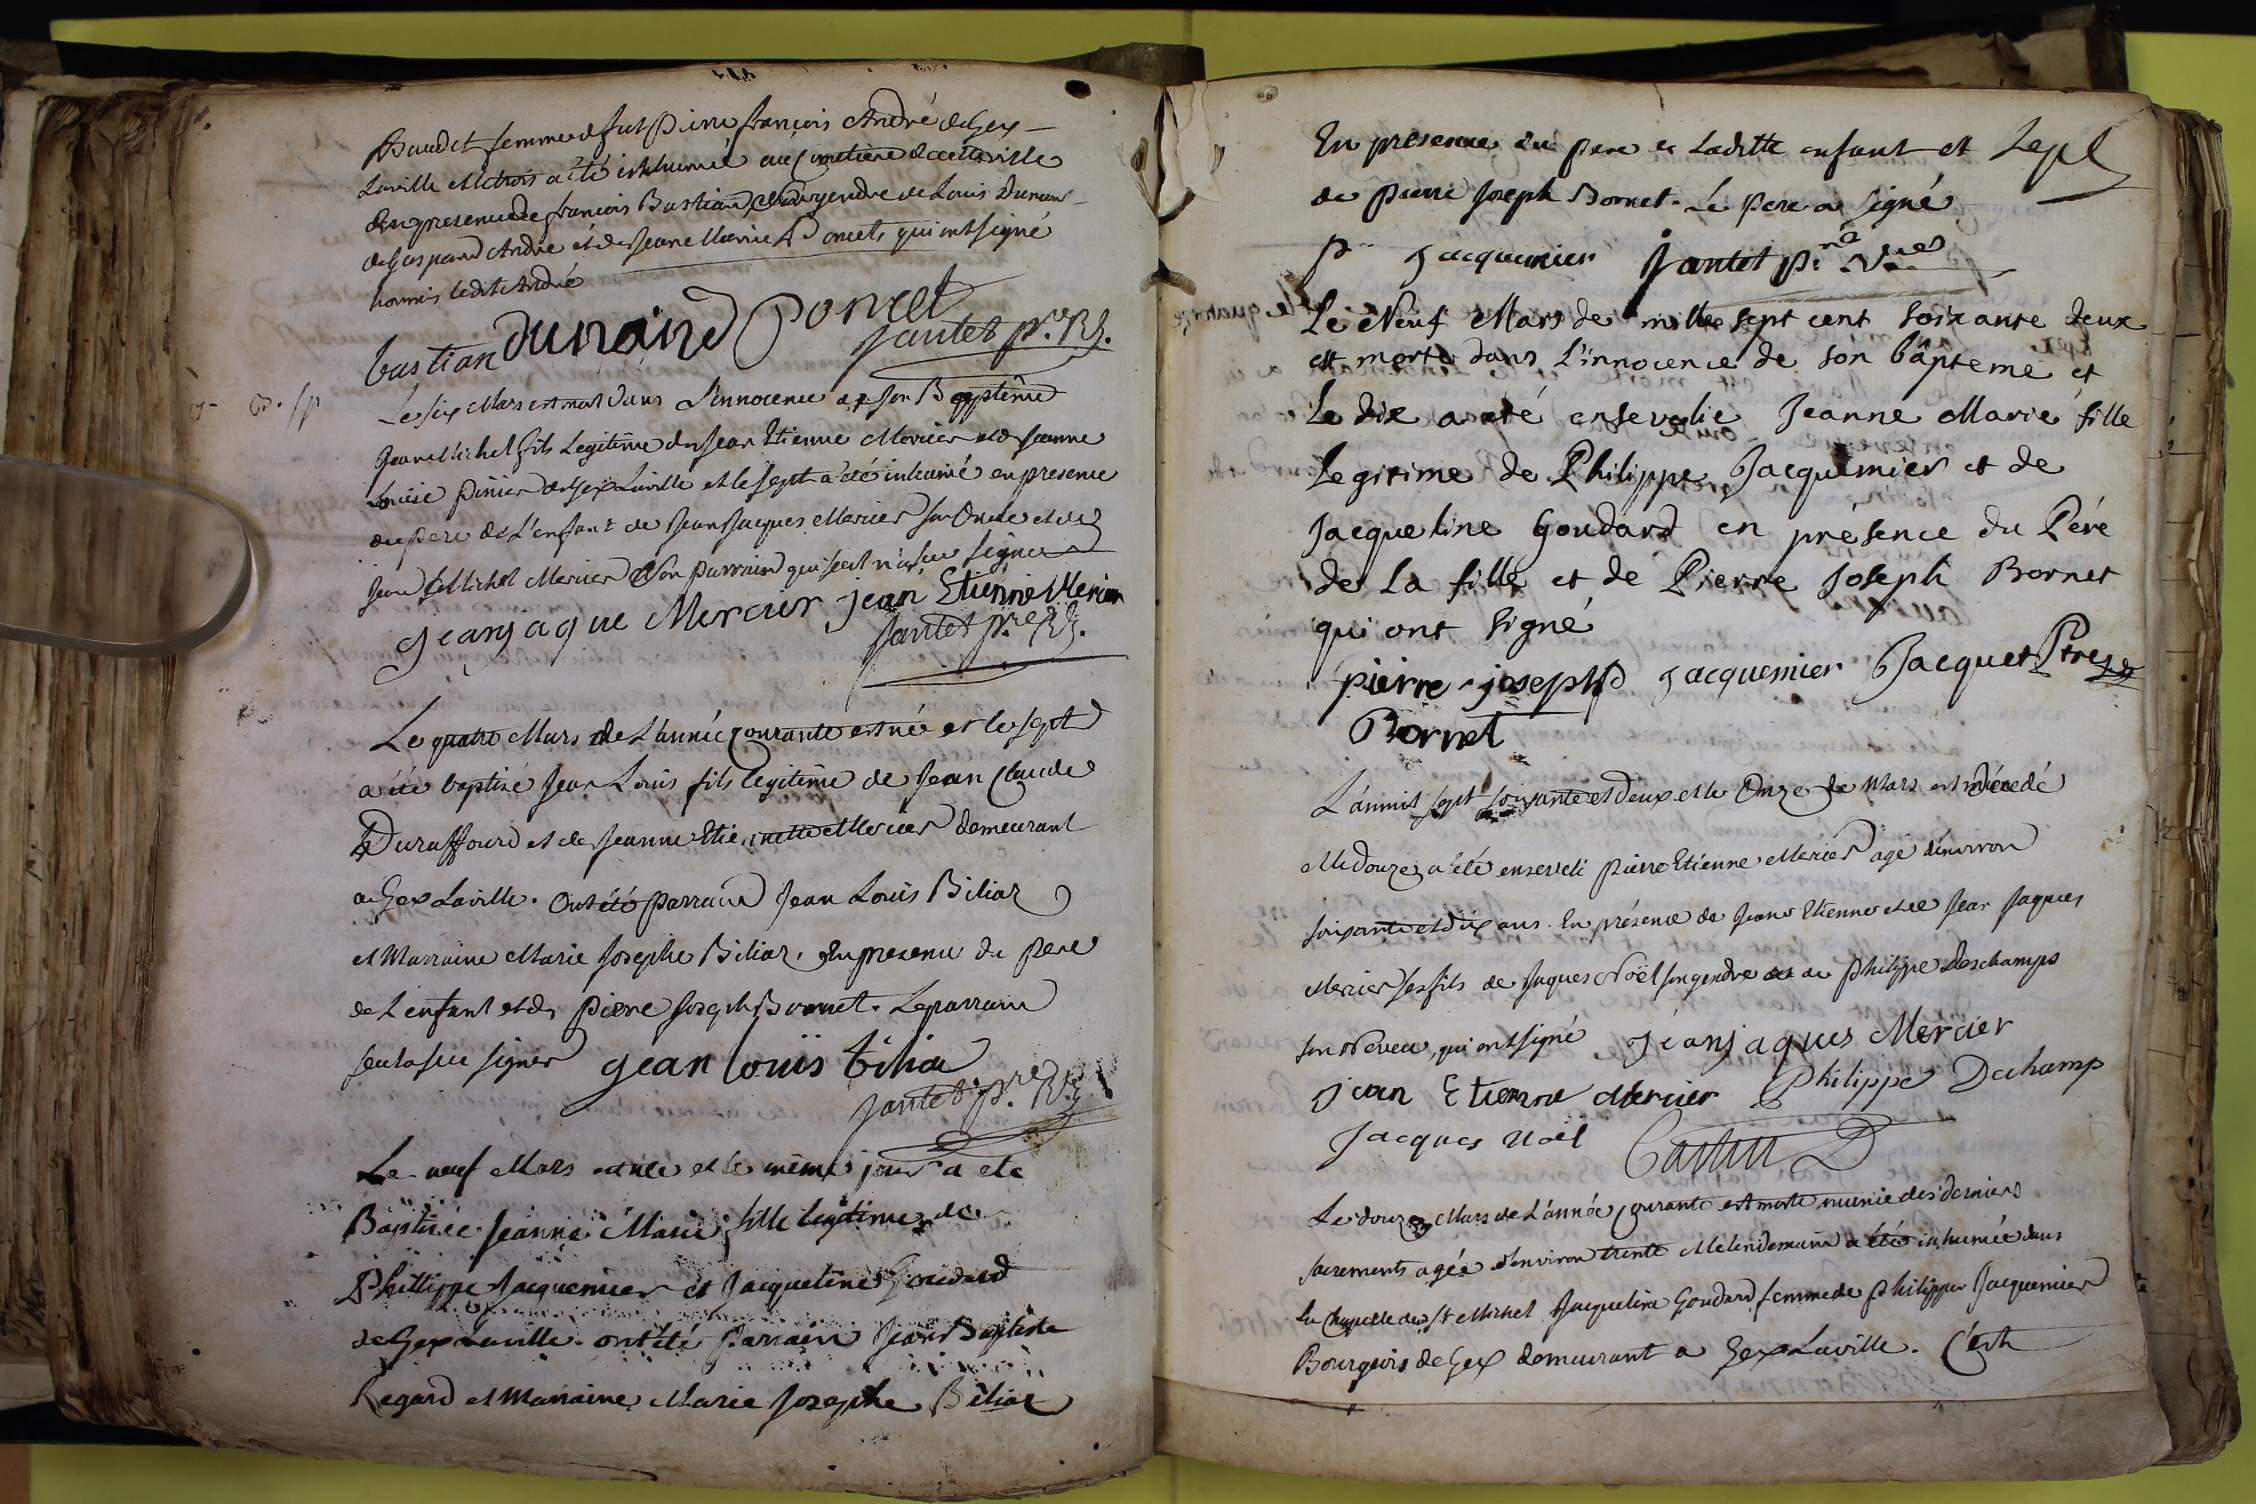 Baudet femme de fut Pierre françois André de Gex
Laville et le trois a été inhumée au Cimetière de cette ville
En presence de françois Bastian gendre de Louis Dunan
de Gaspard André et de Jeane Marie Poncets qui ont signé
hormis ledit André
bastian dunand Poncet
Jantet p.re V.
Le six Mars est mort dans L'innocence de son Bapptême
Jean Michel fils Legitime de Jean Etienne Mercier et de Jeanne
Louise Pinier de Gex Laville et le sept a été inhumé en presence
du pere de L'enfant de Jean Jacques Mercier son Oncle et de
Jean Michel Mercier Son parrain qui seul n'a su signer
Jeanjaque Mercier jean Etienne Mercier
Jantet p.re V.
Le quatre Mars de L'année courante est né et le sept
a été baptisé Jean Louis fils legitime de Jean Claude
Duraffourd et de Jeanne Etiennette Mercier demeurant
a Gex Laville. Ont été parrain Jean Louis Biliaz
et Marraine Marie Josephe Biliaz. En presence du Pere
de L'enfant et de Pierre Joseph Bornet. Le parrain
seul a su signer gean louïs bilia
Jantet p.re V.
Le neuf Mars est née et le même jour a ete
Baptisée Jeanne Marie fille legitime de
Philippe Jacquemier et Jacqueline Goudard
de Gex Laville. ont été Parrain Jean Baptiste
Regard et Marraine Marie Josephe Biliaz
En presence du pere de Laditte enfant et
de Pierre Joseph Bornet. Le Pere a signé
p. Jacquemier Jantet p.
Le Neuf Mars de mille sept cent soixante deux
est morte dans L'innocence de son bâpteme et
Le dix a eté ensevelie Jeanne Marie fille
Legitime de Philippe Jacquemier et de
Jacqueline Goudard en présence du Pére
de La fille et de Pierre Joseph Bornet
qui ont signé
pierre joseph Jacquemier Jacquet Ptre
Bornet
L'an mil sept soixante et deux et le Onze de Mars est décedé
et le douze a été enseveli Pierre Etienne Mercier agé d'environ
soixante et dix ans. En présence de Jean Etienne et de Jean Jaques
Mercier ses fils de Jaques Noël son gendre et de Philippe Deschamps
son Neveu, qui ont signé Jeanjaques Mercier
jean Etienne Mercier Philippe Dechamp
Jacques Noël
Le douze Mars de L'année courante est morte munie des derniers
sacrements agée d'environ trente et le lendemain a été inhumée dans
la Chapelle de St Michel Jacqueline Goudard femme de Philippe Jacquemier
Bourgeois de Gex demeurant a Gex Laville. C'est